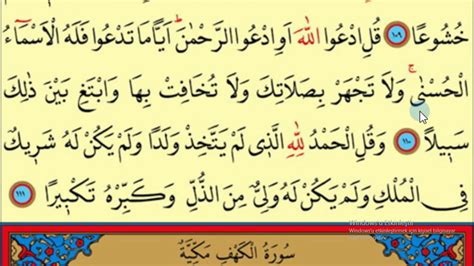 خُشُوعًا ۩ ﴿١٠٩﴾ قُلِ ادْعُوا اللّٰهَ اَوِ ادْعُوا الرَّحْمٰنَۜ اَيًّا مَا تَدْعُوا فَلَهُ الْاَسْمَٓاءُ
الْحُسْنٰىۚ وَلَا تَجْهَرْ بِصَلَاتِكَ وَلَا تُخَافِتْ بِهَا وَابْتَغِ بَيْنَ ذٰلِكَ
سَب۪يلًا ﴿١١٠﴾ وَقُلِ الْحَمْدُ لِلّٰهِ الَّذ۪ي لَمْ يَتَّخِذْ وَلَدًا وَلَمْ يَكُنْ لَهُ شَر۪يكٌ
فِي الْمُلْكِ وَلَمْ يَكُنْ لَهُ وَلِيٌّ مِنَ الذُّلِّ وَكَبِّرْهُ تَكْب۪يرًا ﴿١١١﴾
Windows'u etkinleştirmek için kişisel bilgisayar
سُورَةُ الْكَهْفِ مَكِّيَّةٌ